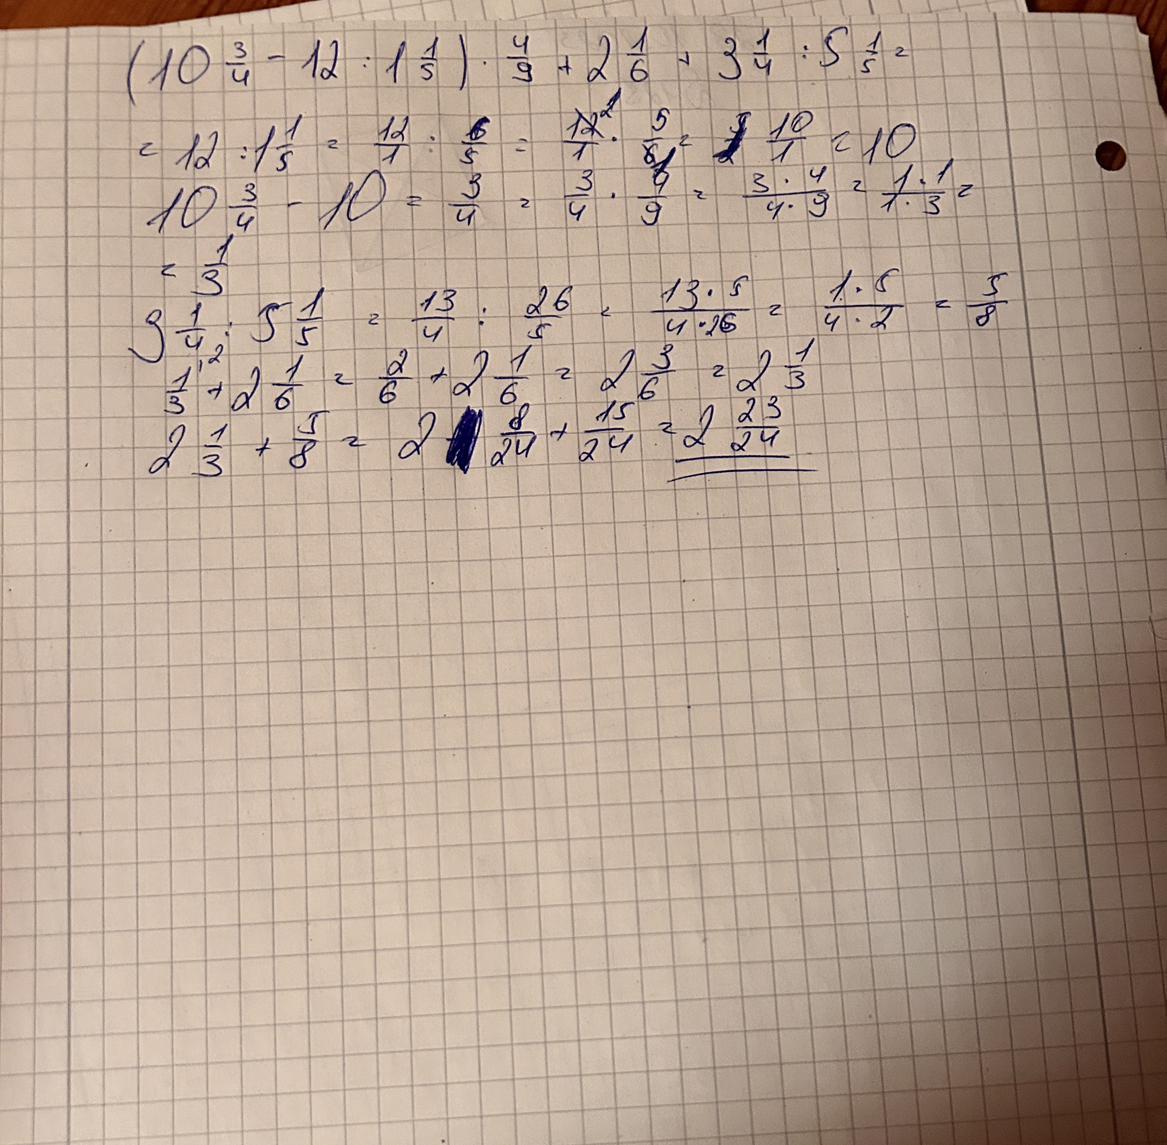 (10 3/4 - 12 : 1 1/5) · 4/9 + 2 1/6 + 3 1/4 : 5 1/5 =
= 12 : 1 1/5 = 12/1 : 6/5 = 12/1 2 · 5/6 1 = 10/1 = 10
10 3/4 - 10 = 3/4 = 3/4 · 4/9 = 3 · 4/4 · 9 = 1 · 1/1 · 3 =
= 1/3
3 1/4 : 5 1/5 = 13/4 : 26/5 = 13 · 5/4 · 26 = 1 · 5/4 · 2 = 5/8
1/3 ·2 + 2 1/6 = 2/6 + 2 1/6 = 2 3/6 = 2 1/3
2 1/3 + 5/8 = 2 8/24 + 15/24 = 2 23/24